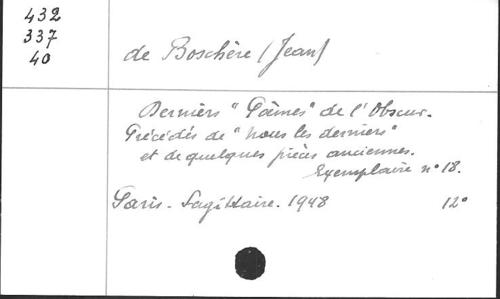 432
337
40
de Boschère (Jean)
Derniers "Poèmes" de l'Obscur.
Précédés de "Nous les derniers"
et de quelques pièces anciennes.
Exemplaire n° 18.
Paris - Sagittaire. 1948 12°